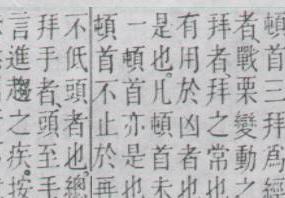 頓首三拜爲經
者、戰栗變動之
拜者、拜之常也
有用於凶者也
是也。凡頓首未
一頓首亦是也
頓首不止於再
不低頭者也、總
拜手者、頭至手
言進趨之疾。按